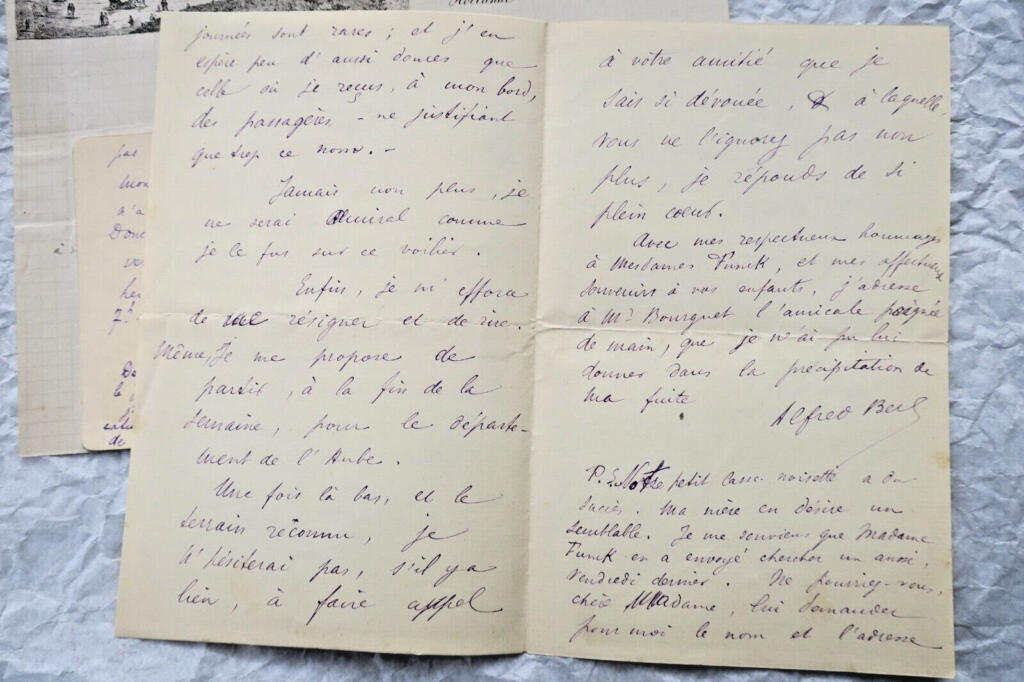 journées sont rares ; et j'en
espère peu d'aussi douces que
celle où je reçus, à mon bord,
des passagères - ne justifiant
que trop ce nom. -
Jamais non plus, je
ne serai Amiral comme
je le fus sur ce voilier.
Enfin, je m'efforce
de me résigner et de rire.
Même, je me propose de
partir, à la fin de la
semaine, pour le départe-
ment de l'Aube.
Une fois là bas, et le
terrain reconnu, je
n'hésiterai pas, s'il y a
lieu, à faire appel
à votre amitié que je
sais si dévouée, & à laquelle,
vous ne l'ignorez pas non
plus, je réponds de si
plein cœur.
Avec mes respectueux hommages
à Mesdames Funck, et mes affectueux
souvenirs à vos enfants, j'adresse
à Mr Bourguet l'amicale poignée
de main, que je n'ai pu lui
donner dans la précipitation de
ma fuite
Alfred Berl
P.S. Notre petit casse-noisette a du
succès. Ma mère en désire un
semblable. Je me souviens que Madame
Funck en a envoyé chercher un aussi,
Vendredi dernier. Ne pourriez-vous,
chère Madame, lui demander
pour moi le nom et l'adresse
pas
mon
n'a
Donc
ver
her
7
à
De
le
de